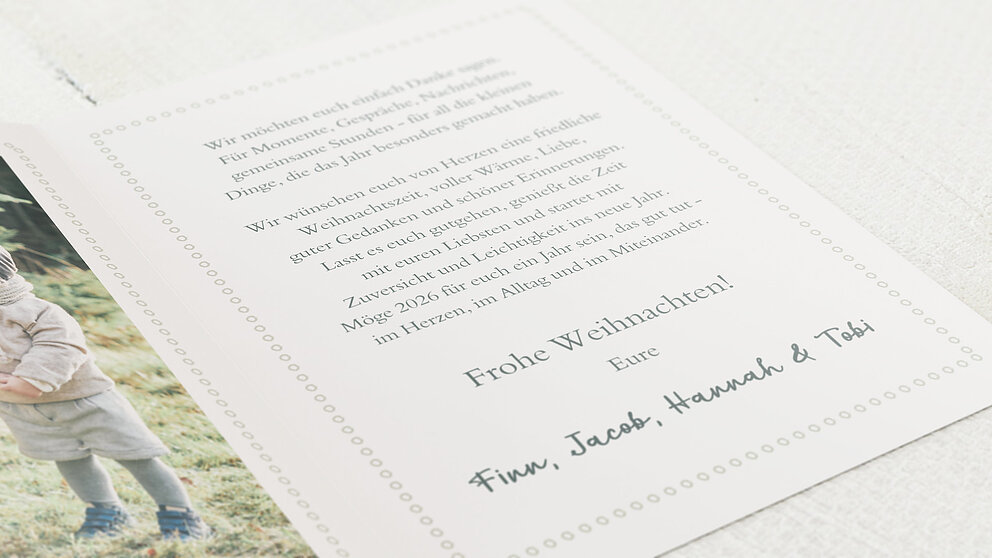 Wir möchten euch einfach Danke sagen.
Für Momente, Gespräche, Nachrichten,
gemeinsame Stunden – für all die kleinen
Dinge, die das Jahr besonders gemacht haben.
Wir wünschen euch von Herzen eine friedliche
Weihnachtszeit, voller Wärme, Liebe,
guter Gedanken und schöner Erinnerungen.
Lasst es euch gutgehen, genießt die Zeit
mit euren Liebsten und startet mit
Zuversicht und Leichtigkeit ins neue Jahr.
Möge 2026 für euch ein Jahr sein, das gut tut –
im Herzen, im Alltag und im Miteinander.
Frohe Weihnachten!
Eure
Finn, Jacob, Hannah & Tobi